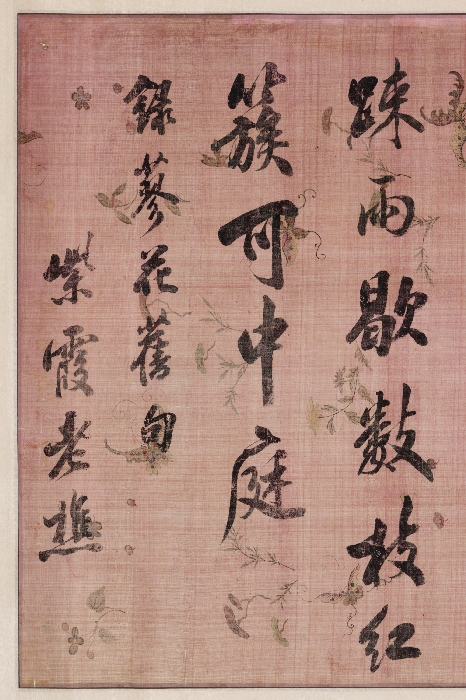 踈雨歇數枝紅
簇可中庭
錄蓼花舊句
紫霞老樵